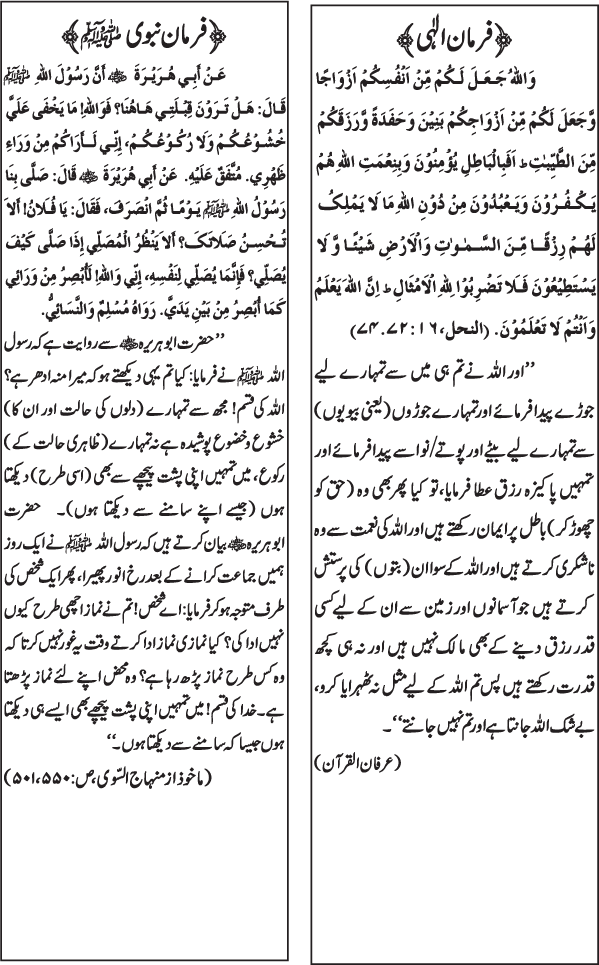 ﴿فرمان الٰہی﴾
وَاللهُ جَعَلَ لَكُمْ مِّنْ اَنْفُسِكُمْ اَزْوَاجًا
وَّجَعَلَ لَكُمْ مِّنْ اَزْوَاجِكُمْ بَنِيْنَ وَحَفَدَةً وَّرَزَقَكُمْ
مِّنَ الطَّيِّبٰتِ ط اَفَبِالْبَاطِلِ يُؤْمِنُوْنَ وَبِنِعْمَتِ اللهِ هُمْ
يَكْفُرُوْنَ وَيَعْبُدُوْنَ مِنْ دُوْنِ اللهِ مَا لَا يَمْلِكُ
لَهُمْ رِزْقًا مِّنَ السَّمٰوٰتِ وَالْاَرْضِ شَيْئًا وَّ لَا
يَسْتَطِيْعُوْنَ فَلَا تَضْرِبُوْا لِلّٰهِ الْاَمْثَالِ ط اِنَّ اللهَ يَعْلَمُ
وَاَنْتُمْ لَا تَعْلَمُوْنَ. (النحل، ۱۶: ۷۲.۷۴)
’’اور اللہ نے تم ہی میں سے تمہارے لیے
جوڑے پیدا فرمائے اور تمہارے جوڑوں (یعنی بیویوں)
سے تمہارے لیے بیٹے اور پوتے/ نواسے پیدا فرمائے اور
تمہیں پاکیزہ رزق عطا فرمایا، تو کیا پھر بھی وہ (حق کو
چھوڑ کر) باطل پر ایمان رکھتے ہیں اور اللہ کی نعمت سے وہ
ناشکری کرتے ہیں اور اللہ کے سوا ان (بتوں) کی پرستش
کرتے ہیں جو آسمانوں اور زمین سے ان کے لیے کسی
قدر رزق دینے کے بھی مالک نہیں ہیں اور نہ ہی کچھ
قدرت رکھتے ہیں پس تم اللہ کے لیے مثل نہ ٹھہرایا کرو،
بے شک اللہ جانتا ہے اور تم نہیں جانتے‘‘۔
(عرفان القرآن)
﴿فرمان نبوی ﷺ﴾
عَنْ أَبِي هُرَيْرَةَ ؓ أَنَّ رَسُوْلَ اللهِ ﷺ
قَالَ: هَلْ تَرَوْنَ قِبْلَتِي هَاهُنَا؟ فَوَاللهِ! مَا يَخْفَى عَلَيَّ
خُشُوْعُكُمْ وَلَا رُكُوْعُكُمْ، إِنِّي لَأَرَاكُمْ مِنْ وَرَاءِ
ظَهْرِي. مُتَّفَقٌ عَلَيْهِ. عَنْ أَبِي هُرَيْرَةَ ؓ قَالَ: صَلَّى بِنَا
رَسُوْلُ اللهِ ﷺ يَوْمًا ثُمَّ انْصَرَفَ، فَقَالَ: يَا فُلَانُ! أَلاَ
تُحْسِنُ صَلَاتَكَ؟ أَلاَ يَنْظُرُ الْمُصَلِّي إِذَا صَلَّى كَيْفَ
يُصَلِّي؟ فَإِنَّمَا يُصَلِّي لِنَفْسِهِ، إِنِّي وَاللهِ! لَأُبْصِرُ مِنْ وَرَائِي
كَمَا أُبْصِرُ مِنْ بَيْنِ يَدَيَّ. رَوَاهُ مُسْلِمٌ وَالنَّسَائِيُّ
’’حضرت ابو ہریرہ ؓ سے روایت ہے کہ رسول
اللہ ﷺ نے فرمایا: کیا تم یہی دیکھتے ہو کہ میرا منہ ادھر ہے؟
اللہ کی قسم! مجھ سے تمہارے (دلوں کی حالت اور ان کا)
خشوع و خضوع پوشیدہ ہے نہ تمہارے (ظاہری حالت کے)
رکوع، میں تمہیں اپنی پشت پیچھے سے بھی (اسی طرح) دیکھتا
ہوں (جیسے اپنے سامنے سے دیکھتا ہوں)۔ حضرت
ابو ہریرہ ؓ بیان کرتے ہیں کہ رسول اللہ ﷺ نے ایک روز
ہمیں جماعت کرانے کے بعد رخِ انور پھیرا، پھر ایک شخص کی
طرف متوجہ ہو کر فرمایا: اے شخص! تم نے نماز اچھی طرح کیوں
نہیں ادا کی؟ کیا نمازی نماز ادا کرتے وقت یہ غور نہیں کرتا کہ
وہ کس طرح نماز پڑھ رہا ہے؟ وہ محض اپنے لئے نماز پڑھتا
ہے۔ خدا کی قسم! میں تمہیں اپنی پشت پیچھے بھی ایسے ہی دیکھتا
ہوں جیسا کہ سامنے سے دیکھتا ہوں۔‘‘
(ماخوذ از منہاج السّوی، ص: ۵۵۰، ۵۰۱)